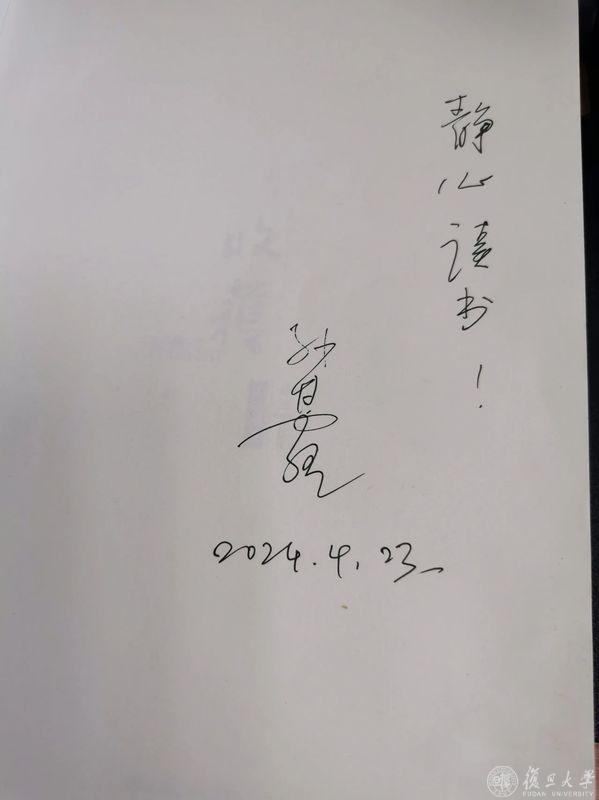 静心读书！
孙
2024.4.23
復旦大學
FUDAN UNIVERSITY